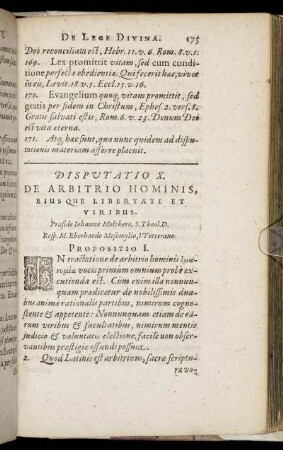 De Lege Divina. 175
Deo reconciliata est, Hebr. 11. v. 6. Rom. 8. v. 1.
169. Lex promittit vitam, sed cum condi-
tione perfectæ obedientiæ. Qui fecerit hac, vivet
in eis, Levit. 18 v. 5. Eccl. 15. v. 16.
170. Evangelium quoq, vitam promittit, sed
gratis per fidem in Christum, Ephes. 2. vers. 8.
Gratia salvati estis, Rom. 6. v. 23. Donum Dei
est vita æterna.
171. Atq, hac sunt, quæ nunc quidem ad dispu-
tationis materiam afferre placuit.
DISPUTATIO X.
DE ARBITRIO HOMINIS,
EIUSQUE LIBERTATE ET
VIRIBUS.
Præside Iohanne S. Theol. D.
Resp. M. Eberhardo
Propositio I.
IN tractatione de arbitrio hominis
vocis primum omnium probè ex-
cutienda est. Cum enim illa nonnun-
quam prædicatur de nobilissimis dua-
bus animæ rationalis partibus, nimirum cogno-
scente & appetente: Nonnunquam etiam de ea-
rum viribus & facultatibus, nimirum mentis
judicio & voluntatis electione, facilè non obser-
vantibus præstigiæ offundi possunt.
2. Quod Latinis est arbitrium, sacræ scriptu-
ræ vo-